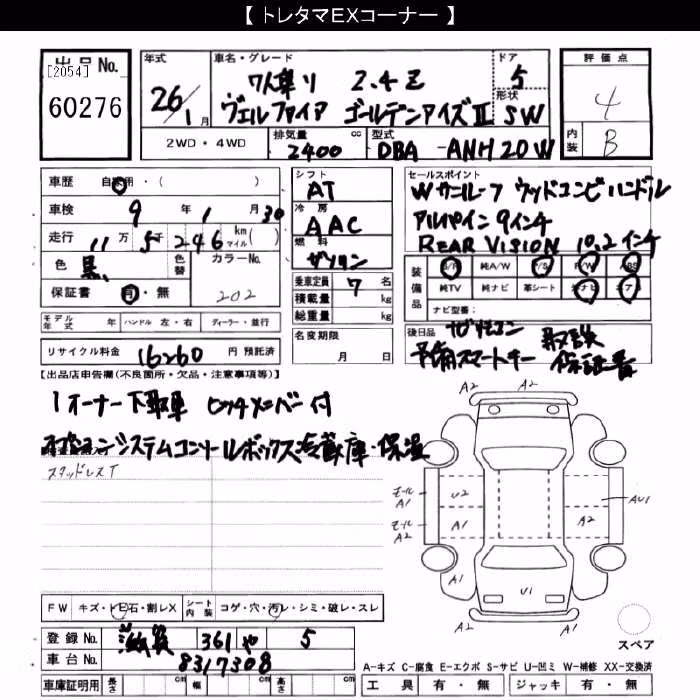 【 トレタマEXコーナー 】
出品No.
[2054]
60276
年式
26/1月
車名・グレード
7人乗り 2.4Z
ヴェルファイア ゴールデンアイズⅡ
ドア
5
形状
SW
評価点
4
内装
B
2WD・4WD
排気量 cc
2400
型式
DBA-ANH20W
車歴 自家用・( )
車検 9年 1月 30
走行 11万 5千 246 km マイル( )
色 黒
色替
カラーNo.
202
保証書 有・無
モデル年式 年 ハンドル 左・右 ディーラー・並行
リサイクル料金 16260 円 預託済
シフト
AT
冷房
AAC
燃料
ガソリン
乗車定員 7 名
積載量 kg
総重量 kg
名変期限
月 日
セールスポイント
Wサンルーフ ウッドコンビハンドル
アルパイン 9インチ
REAR VISION 10.2インチ
装備品
S/R 純A/W P/S P/W ABS
純TV 純ナビ 革シート 社ナビ エアB
ナビ型番:
後日品 ナビリモコン 取説
予備スマートキー 保証書
【出品店申告欄(不良箇所・欠品・注意事項等)】
1オーナー下取車 ロッドメンバー付
オプションシステムコンソールボックス冷蔵庫・保温
スタッドレスT
FW キズ・トビ石・割レX シート内装 コゲ・穴・汚レ・シミ・破レ・スレ
登録No. 滋賀 361 や 5
車台No. 8317308
車庫証明用 長さ cm 幅 cm 高さ cm
A2 A2
モール A1
U2
A1
モール A2
A1
A2
AU1
U1
A1
A2
スペア
A-キズ C-腐食 E-エクボ S-サビ U-凹ミ W-補修 XX-交換済
工具 有・無 ジャッキ 有・無